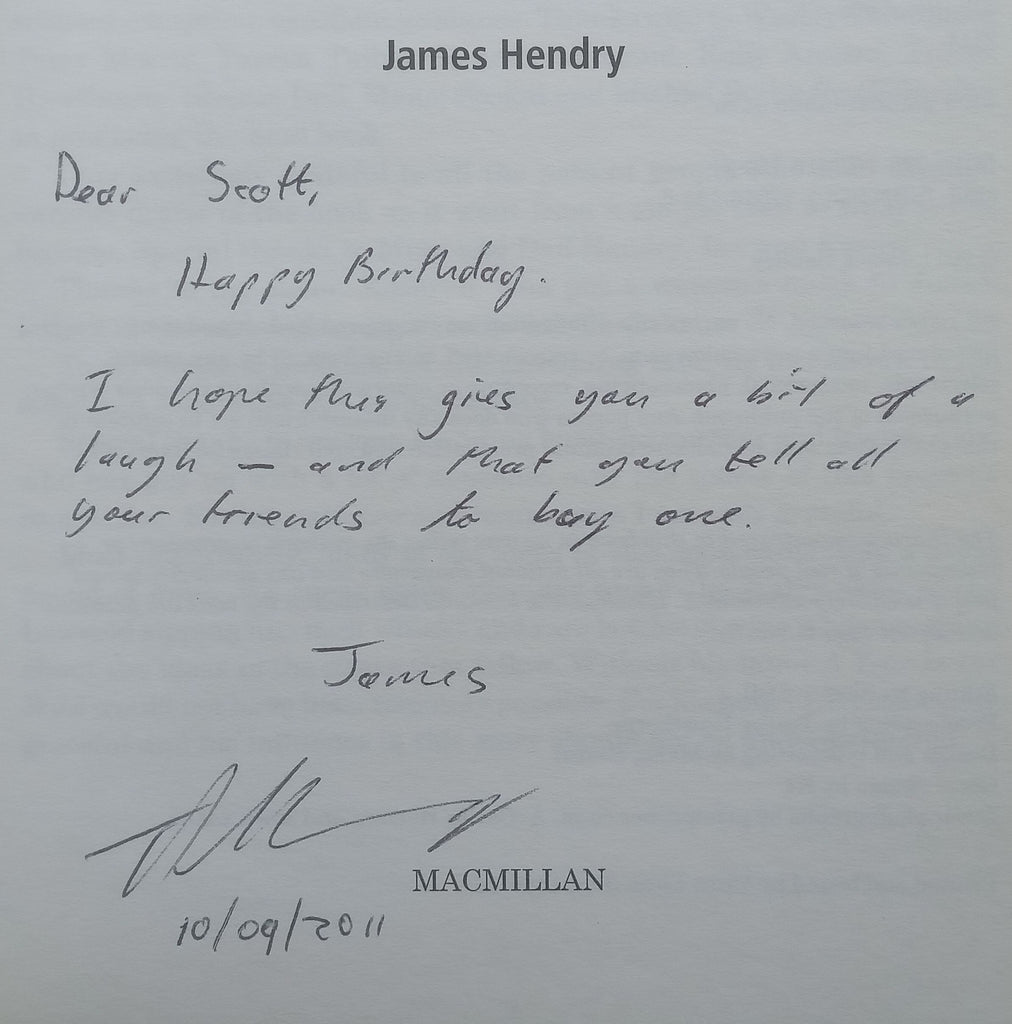 James Hendry
Dear Scott,
Happy Birthday.
I hope this gives you a bit of a
laugh – and that you tell all
your friends to buy one.
James
MACMILLAN
10/09/2011